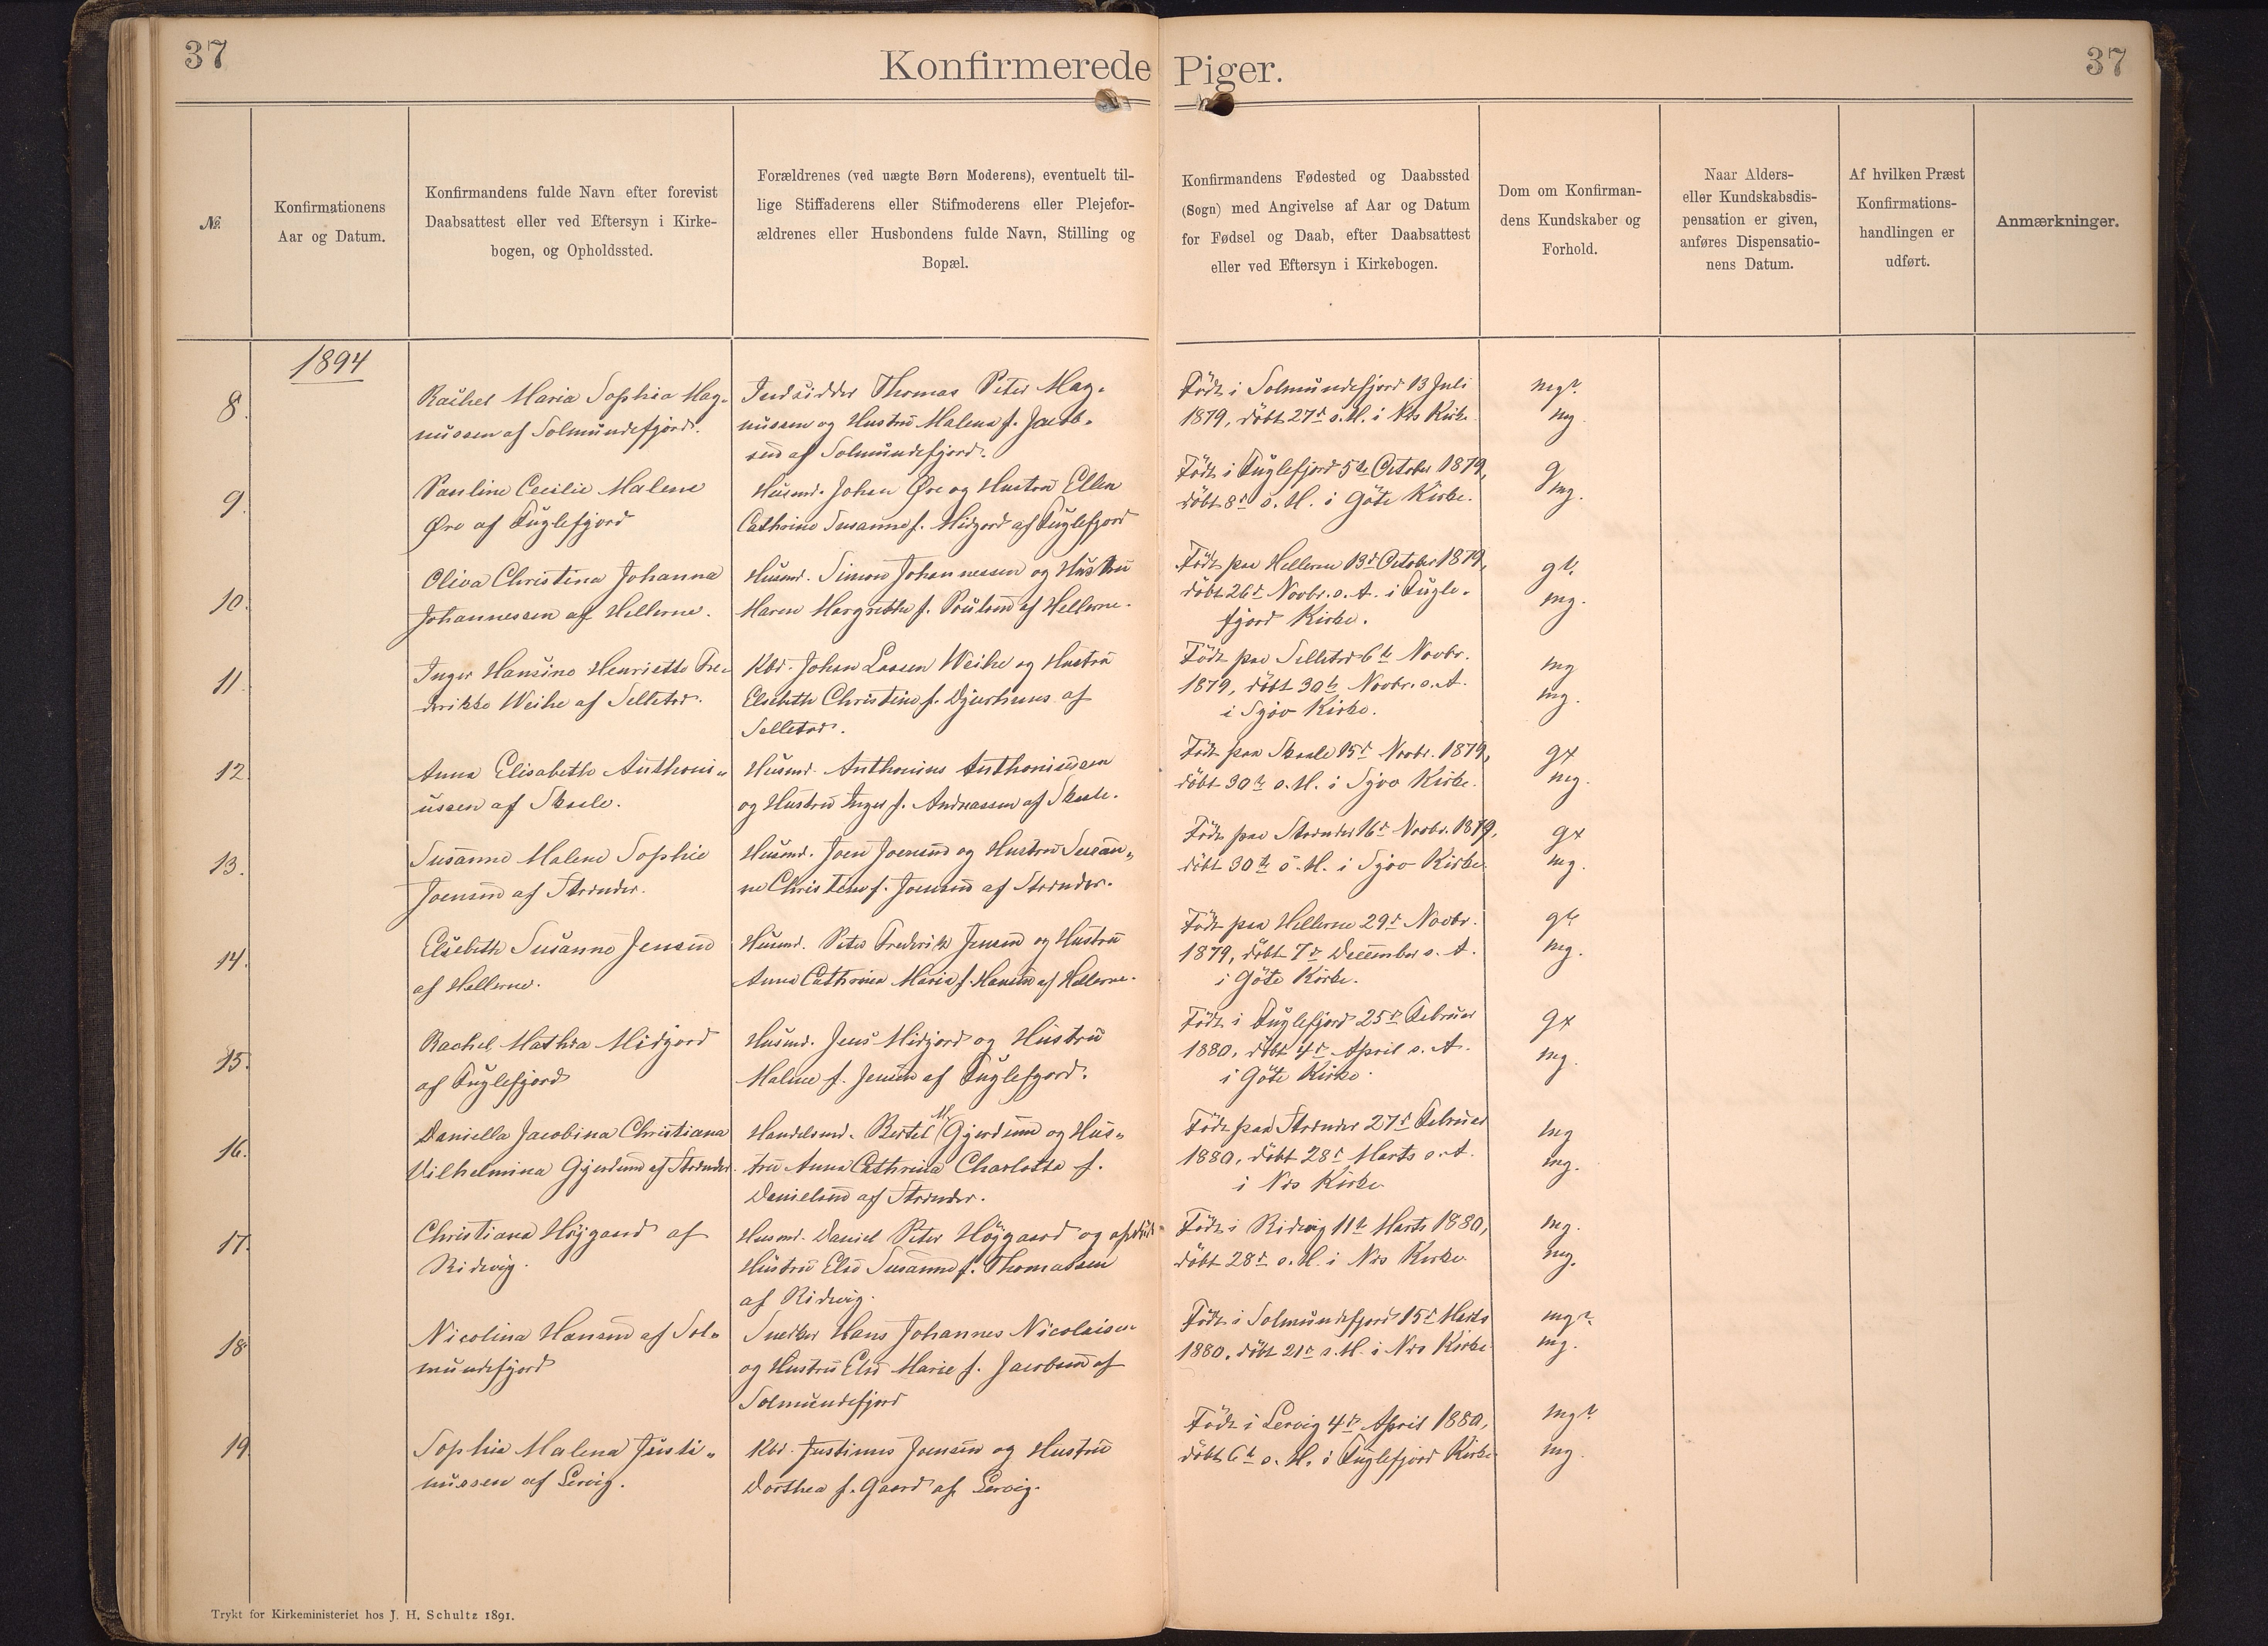 37
Konfirmerede Piger.
37
№
Konfirmationens
Aar og Datum.
Konfirmandens fulde Navn efter forevist
Daabsattest eller ved Eftersyn i Kirke-
bogen, og Opholdssted.
Forældrenes (ved uægte Børn Moderens), eventuelt til-
lige Stiffaderens eller Stifmoderens eller Plejefor-
ældrenes eller Husbondens fulde Navn, Stilling og
Bopæl.
Konfirmandens Fødested og Daabssted
(Sogn) med Angivelse af Aar og Datum
for Fødsel og Daab, efter Daabsattest
eller ved Eftersyn i Kirkebogen.
Dom om Konfirman-
dens Kundskaber og
Forhold.
Naar Alders-
eller Kundskabsdis-
pensation er given,
anføres Dispensatio-
nens Datum.
Af hvilken Præst
Konfirmations-
handlingen er
udført.
Anmærkninger.
1894
8.
Rachel Maria Sophia Mag-
nussen af Solmundefjord.
Indsidder Thomas Peter Mag-
nussen og Hustru Malena f. Jacob-
sen af Solmundefjord.
Födt i Solmundefjord 13 Juli
1879, döbt 27d s. M. i Nes Kirke.
mg?
mg.
9.
Pauline Cecilie Malene
Øre af Fuglefjord
Husmd. Johan Øre og Hustru Ellen
Cathrine Susanne f. Midjord af Fuglefjord
Födt i Fuglefjord 5te October 1879,
döbt 8d s. M. i Göte Kirke.
g
mg.
10.
Oliva Christina Johanna
Johannessen af Hellerne.
Husmd. Simon Johannessen og Hustru
Maren Margrethe f. Poulsen af Hellerne.
Födt paa Hellerne 13d October 1879,
döbt 26d Novbr. s. A. i Fugle-
fjord Kirke.
mg.
11.
Inger Hansine Henriette Fre-
derikke Weihe af Selletræ.
Kbd. Johan Lassen Weihe og Hustru
Elsebeth Christine f. Djurhuus af
Födt paa 6te Novbr.
1879, döbt 30te Novbr. s. A.
i Sjov Kirke.
mg
mg.
12.
Anna Elisabeth Anthoni-
ussen af Skaale.
Husmd. Anthonius Anthoniussen
og Hustru Inger f. Andreassen af Skaale.
Födt paa Skaale 15d Novbr. 1879,
döbt 30te s. M. i Sjov Kirke.
gx
mg.
13.
Susanne Malene Sophie
Joensen af Strænder.
Husmd. Joen Joensen og Hustru Susan-
ne Christine f. Joensen af Strænder.
Födt paa Strænder 16d Novbr. 1879,
döbt 30te s. M. i Sjov Kirke.
gx
mg.
14.
Elsebeth Susanne Jensen
af Hellerne.
Husmd. Peter Frederik Jensen og Hustru
Anna Cathrina Maria f. Hansen af Hellerne.
Födt paa Hellerne 29d Novbr.
1879, döbt 7de December s. A.
i Göte Kirke.
mg.
15.
Rachel Mathea Midjord
af Fuglefjord
Husmd. Jens Midjord og Hustru
Malene f. Jensen af Fuglefjord.
Födt i Fuglefjord 25de Februar
1880, döbt 4de April s. A.
i Göte Kirke.
gx
mg.
16.
Daniella Jacobina Christiana
Vilhelmina Gjerdum af Strænder.
Handelsmd. Bertel M. Gjerdum og Hus-
tru Anna Cathrina Charlotta f.
Danielsen af Strænder.
Födt paa Strænder 27d Februar
1880, döbt 28d Marts s. A.
i Nes Kirke
mg
mg.
17.
Christiana Höjgaard af
Ridevig.
Husmd. Daniel Peter Höjgaard og afdöde
Hustru Else Susanne f. Thomassen
af Ridevig.
Födt i Ridevig 11te Marts 1880,
döbt 28d s. M. i Nes Kirke.
mg.
mg.
18.
Nicolina Hansen af Sol-
mundefjord
Snedker Hans Johannes Nicolaisen
og Hustru Else Marie f. Jacobsen af
Solmundefjord
Födt i Solmundefjord 15d Marts
1880, döbt 21d s. M. i Nes Kirke
mg?
mg.
19.
Sophia Malena Justi-
nussen af Lervig.
Kbd. Justinus Joensen og Hustru
Dorthea f. Gaard af Lervig.
Födt i Lervig 4de April 1880,
döbt 6te s. M. i Fuglefjord Kirke.
mg?
mg.
Trykt for Kirkeministeriet hos J. H. Schultz 1891.